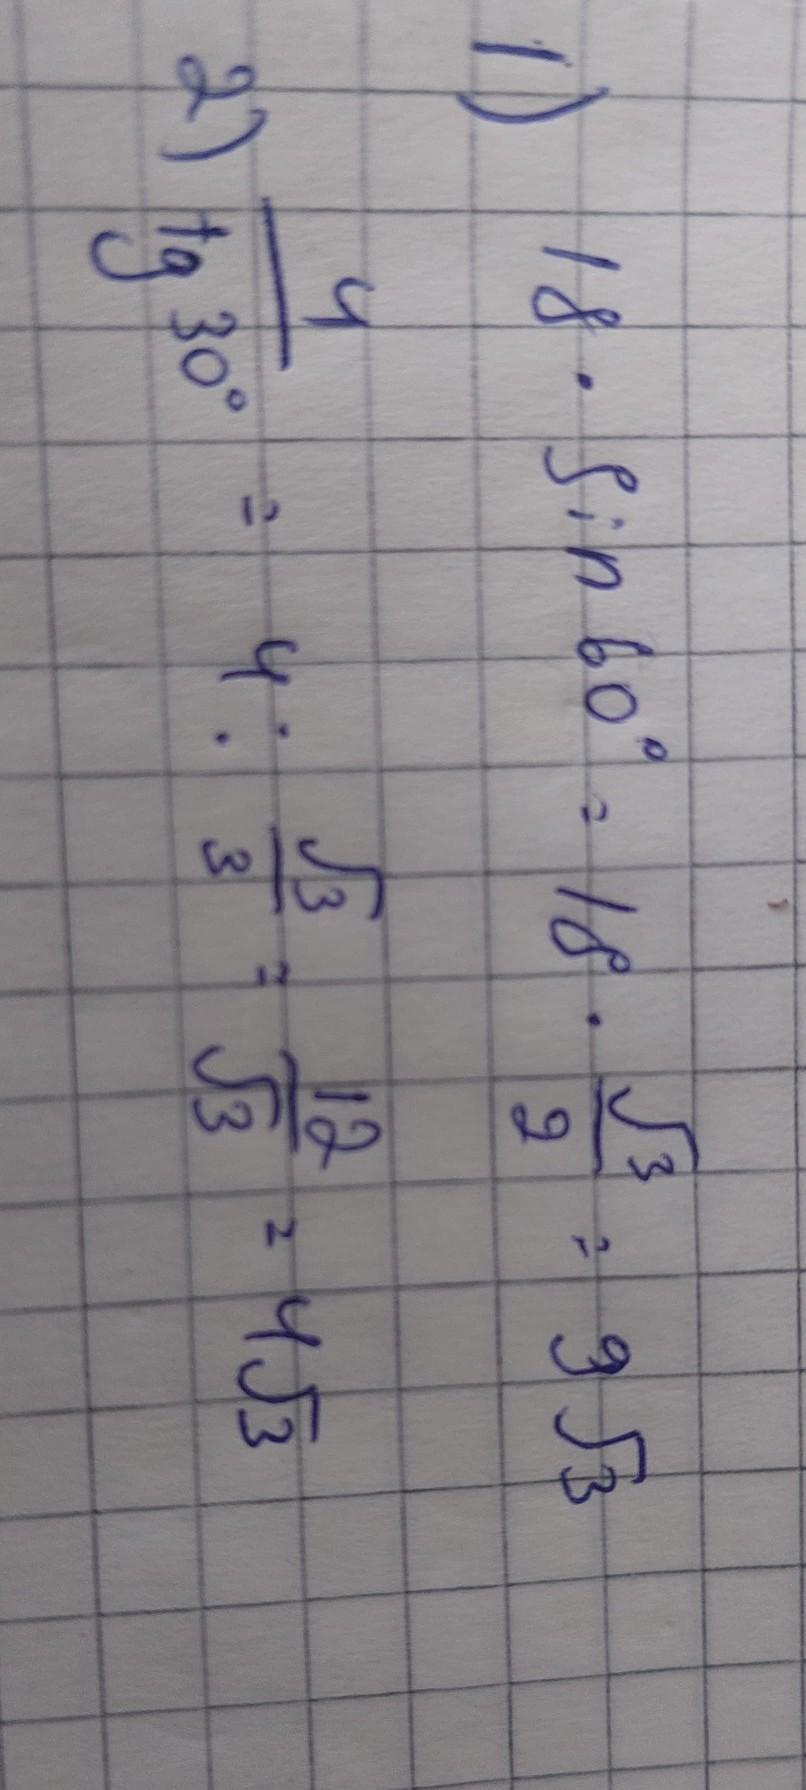 1) 18 · sin 60° = 18 · √3/2 = 9√3
2) 4/tg 30° = 4 : √3/3 = 12/√3 = 4√3